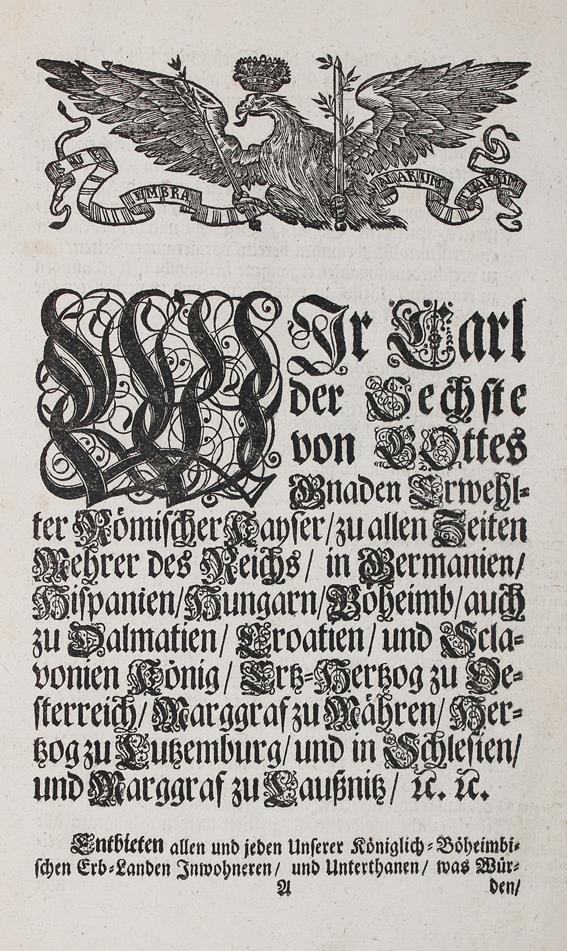 SUB UMBRA ALARUM TUARUM
WIr Carl
der Sechste
von GOttes
Gnaden Erwehl-
ter Römischer Kayser/ zu allen Zeiten
Mehrer des Reichs/ in Germanien/
Hispanien/ Hungarn/ Böheimb/ auch
zu Dalmatien/ Croatien/ und Scla-
vonien König/ Ertz-Hertzog zu Oe-
sterreich/ Marggraf zu Mähren/ Her-
tzog zu Lutzemburg/ und in Schlesien/
und Marggraf zu Laußnitz/ ꝛc. ꝛc.
Entbieten allen und jeden Unserer Königlich-Böheimbi-
schen Erb-Landen Inwohneren/ und Unterthanen/ was Wür-
A den/